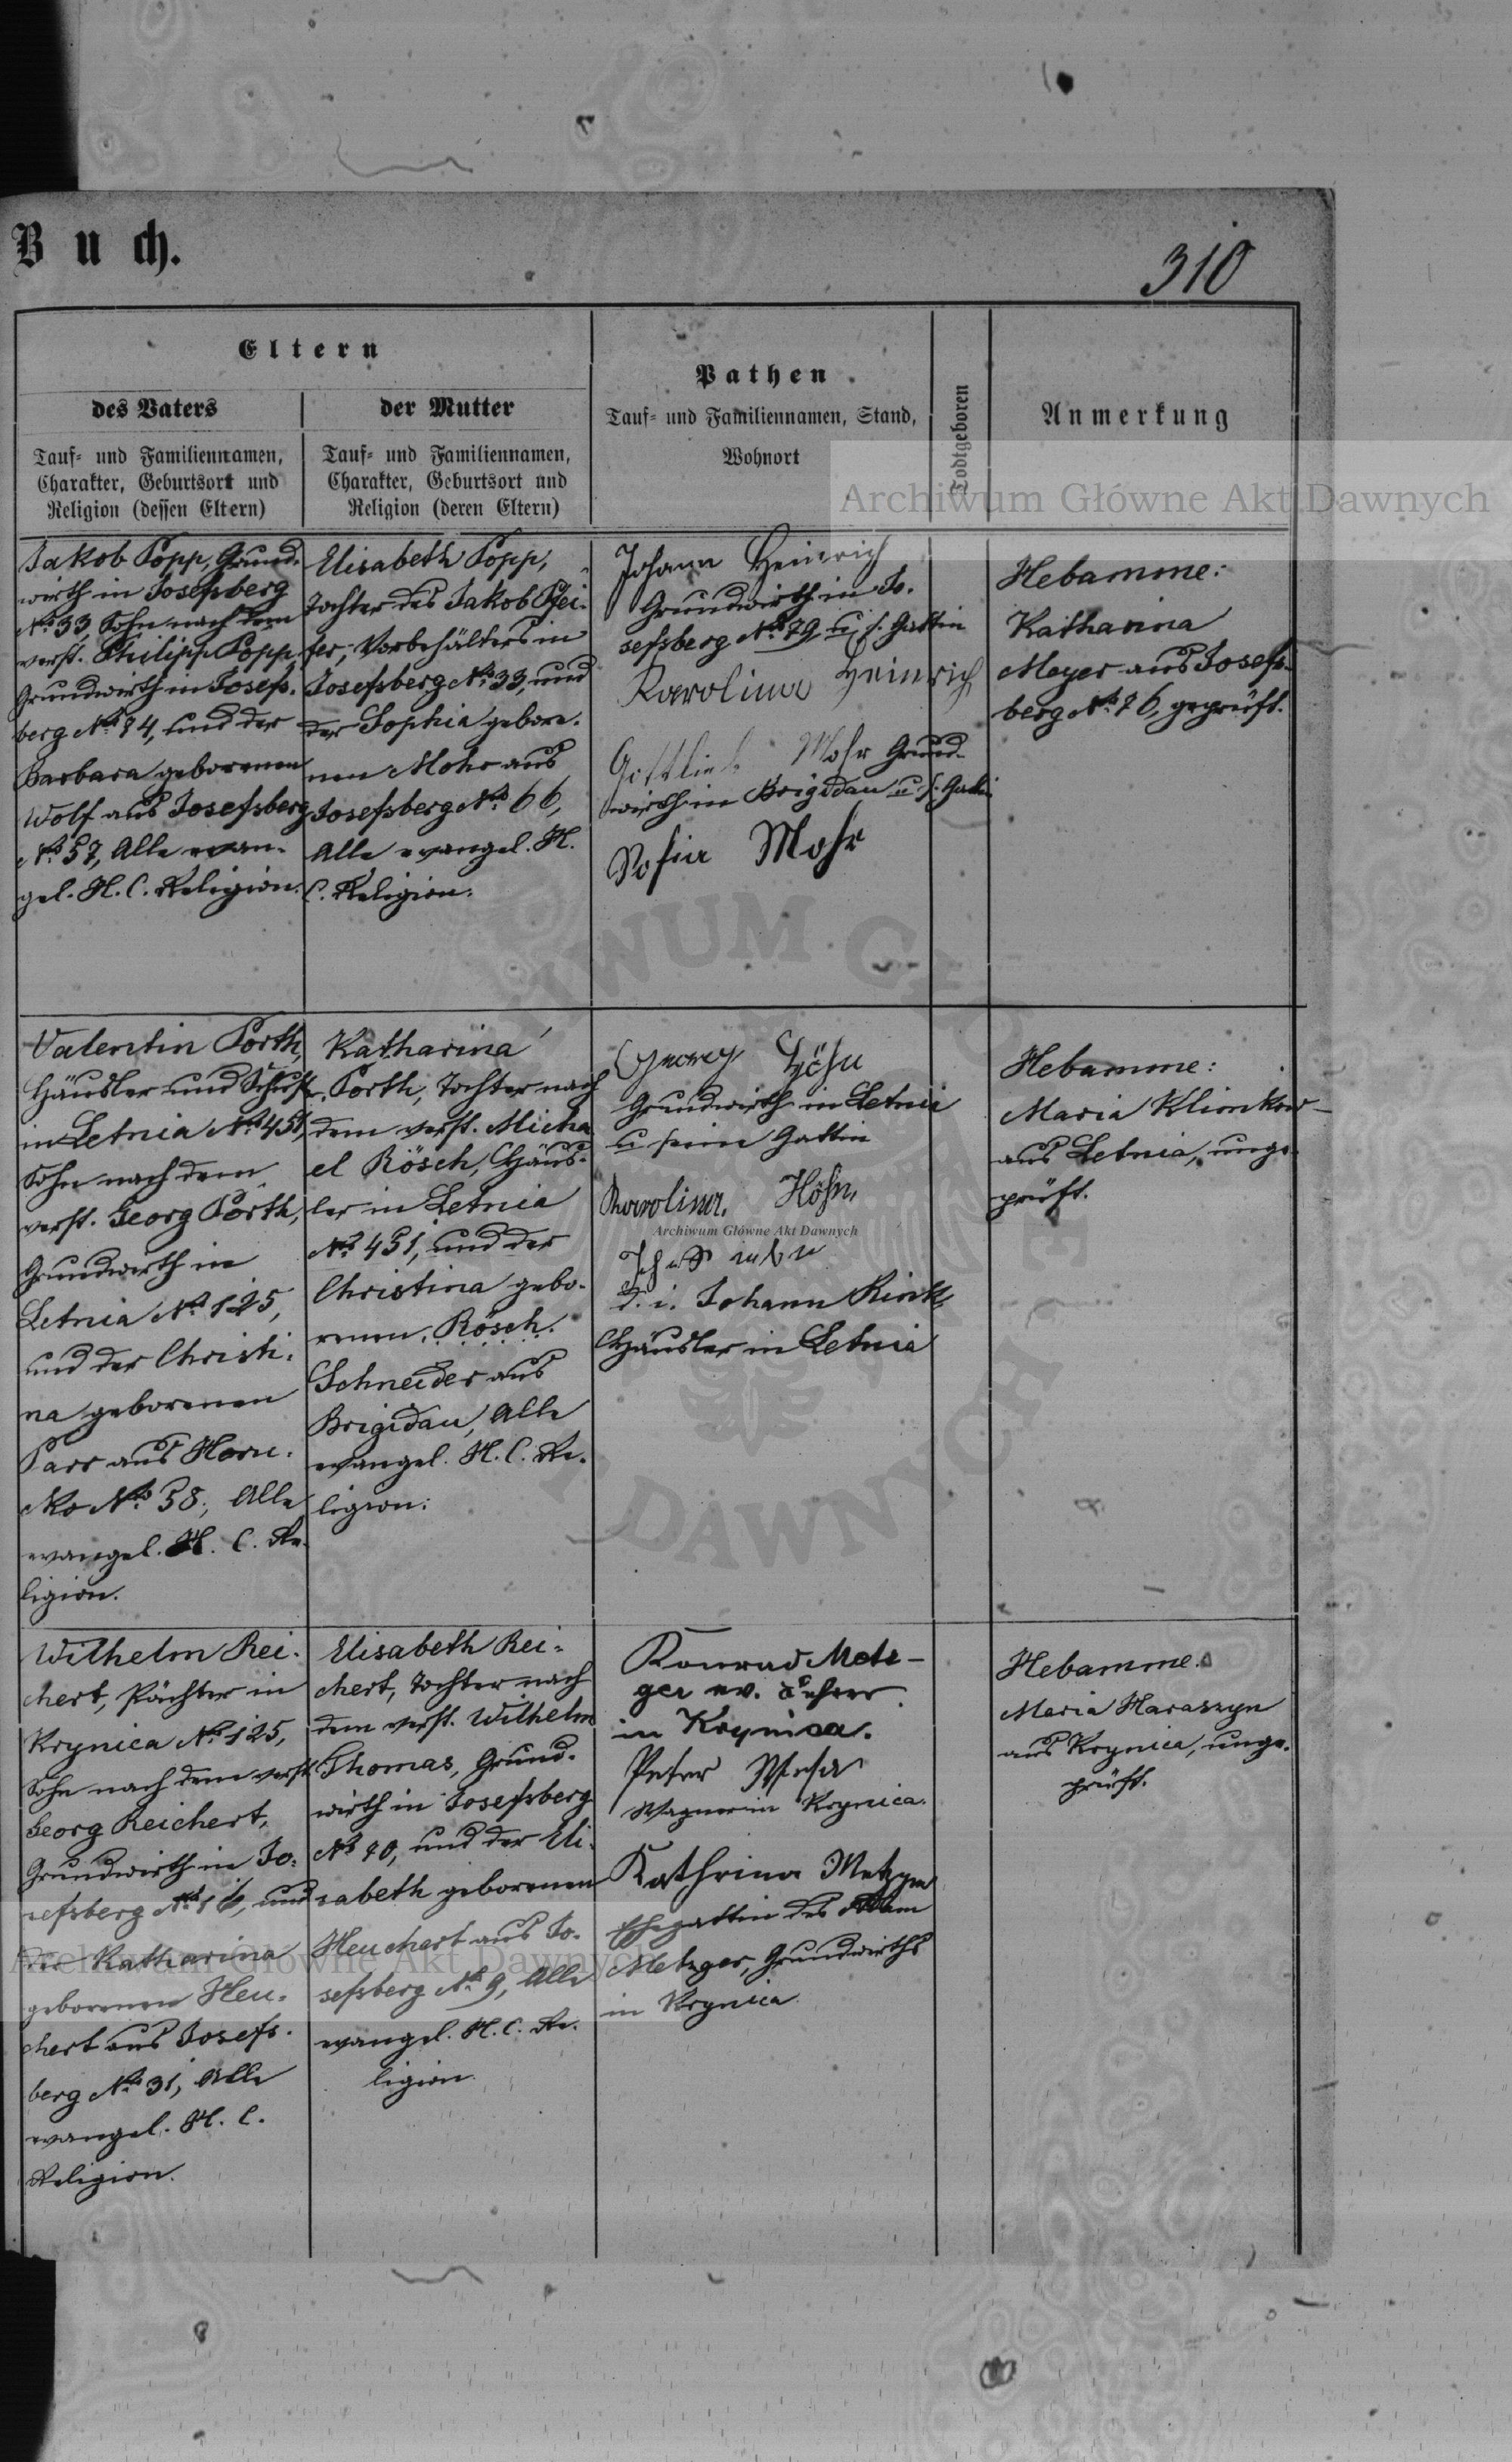 Buch.
310
Eltern
des Vaters
Tauf- und Familiennamen,
Charakter, Geburtsort und
Religion (dessen Eltern)
der Mutter
Tauf- und Familiennamen,
Charakter, Geburtsort und
Religion (deren Eltern)
Pathen
Tauf- und Familiennamen, Stand,
Wohnort
Todtgeboren
Anmerkung
Archiwum Główne Akt Dawnych
Jakob Popp, Grund-
wirth in Josefsberg
No 33, Sohn nach dem
verst. Philipp Popp,
Grundwirth in Josefs-
berg No 84, und der
Barbara geborenen
Wolf aus Josefsberg
No 57, Alle evan-
gel. H. C. Religion.
Elisabeth Popp,
Tochter des Jakob Pfei-
fer, Vorbehälters in
Josefsberg No 33, und
der Sophia gebore-
nen Mohr aus
Josefsberg No 66,
Alle evangel. H.
C. Religion.
Johann Heinrich
Grundwirth in Jo-
sefsberg No 79 u. s. Gattin
Karolina Heinrich
Gottlieb Mohr Grund-
wirth in Brigidau u. s. Gattin
Sofia Mohr
Hebamme:
Katharina
Meyer aus Josefs-
berg No 76, geprüft.
Valentin Porth,
Häusler und Schust
in Letnia No 451,
Sohn nach dem
verst. Georg Porth,
Grundwirth in
Letnia No 125,
und der Christi-
na geborenen
Parr aus Horu-
cko No 58, Alle
evangel. H. C. Re-
ligion.
Katharina
Porth, Tochter nach
dem verst. Micha
el Rösch, Häus-
ler in Letnia
No 451, und der
Christina gebo-
renen Rösch.
Schneider aus
Brigidau, Alle
evangel. H. C. Re-
ligion.
Georg Höhn
Grundwirth in Letnia
u seine Gattin
Karolina Höhn,
Archiwum Główne Akt Dawnych
d. i. Johann Rink
Häusler in Letnia
Hebamme:
Maria Klimkow
aus Letnia, unge-
prüft.
Wilhelm Rei-
chert, Pächter in
Krynica No 125,
Sohn nach dem verst
Georg Reichert,
Grundwirth in Jo-
sefsberg No 16, und
der Katharina
geborenen Heu-
chert aus Josefs-
berg No 31, Alle
evangel. H. C.
Religion.
Elisabeth Rei-
chert, Tochter nach
dem verst. Wilhelm
Thomas, Grund-
wirth in Josefsberg
No 80, und der Eli-
sabeth geborenen
Heuchert aus Jo-
sefsberg No 9, Alle
evangel. H. C. Re-
ligion.
Konrad Metz-
ger ev. Lehrer
in Krynica.
Peter
Wagner in Krynica.
Kathrina Metzger
Ehegattin des Adam
Metzger, Grundwirths
in Krynica
Hebamme:
Maria Haraszyn
aus Krynica, unge-
prüft.
Archiwum Główne Akt Dawnych